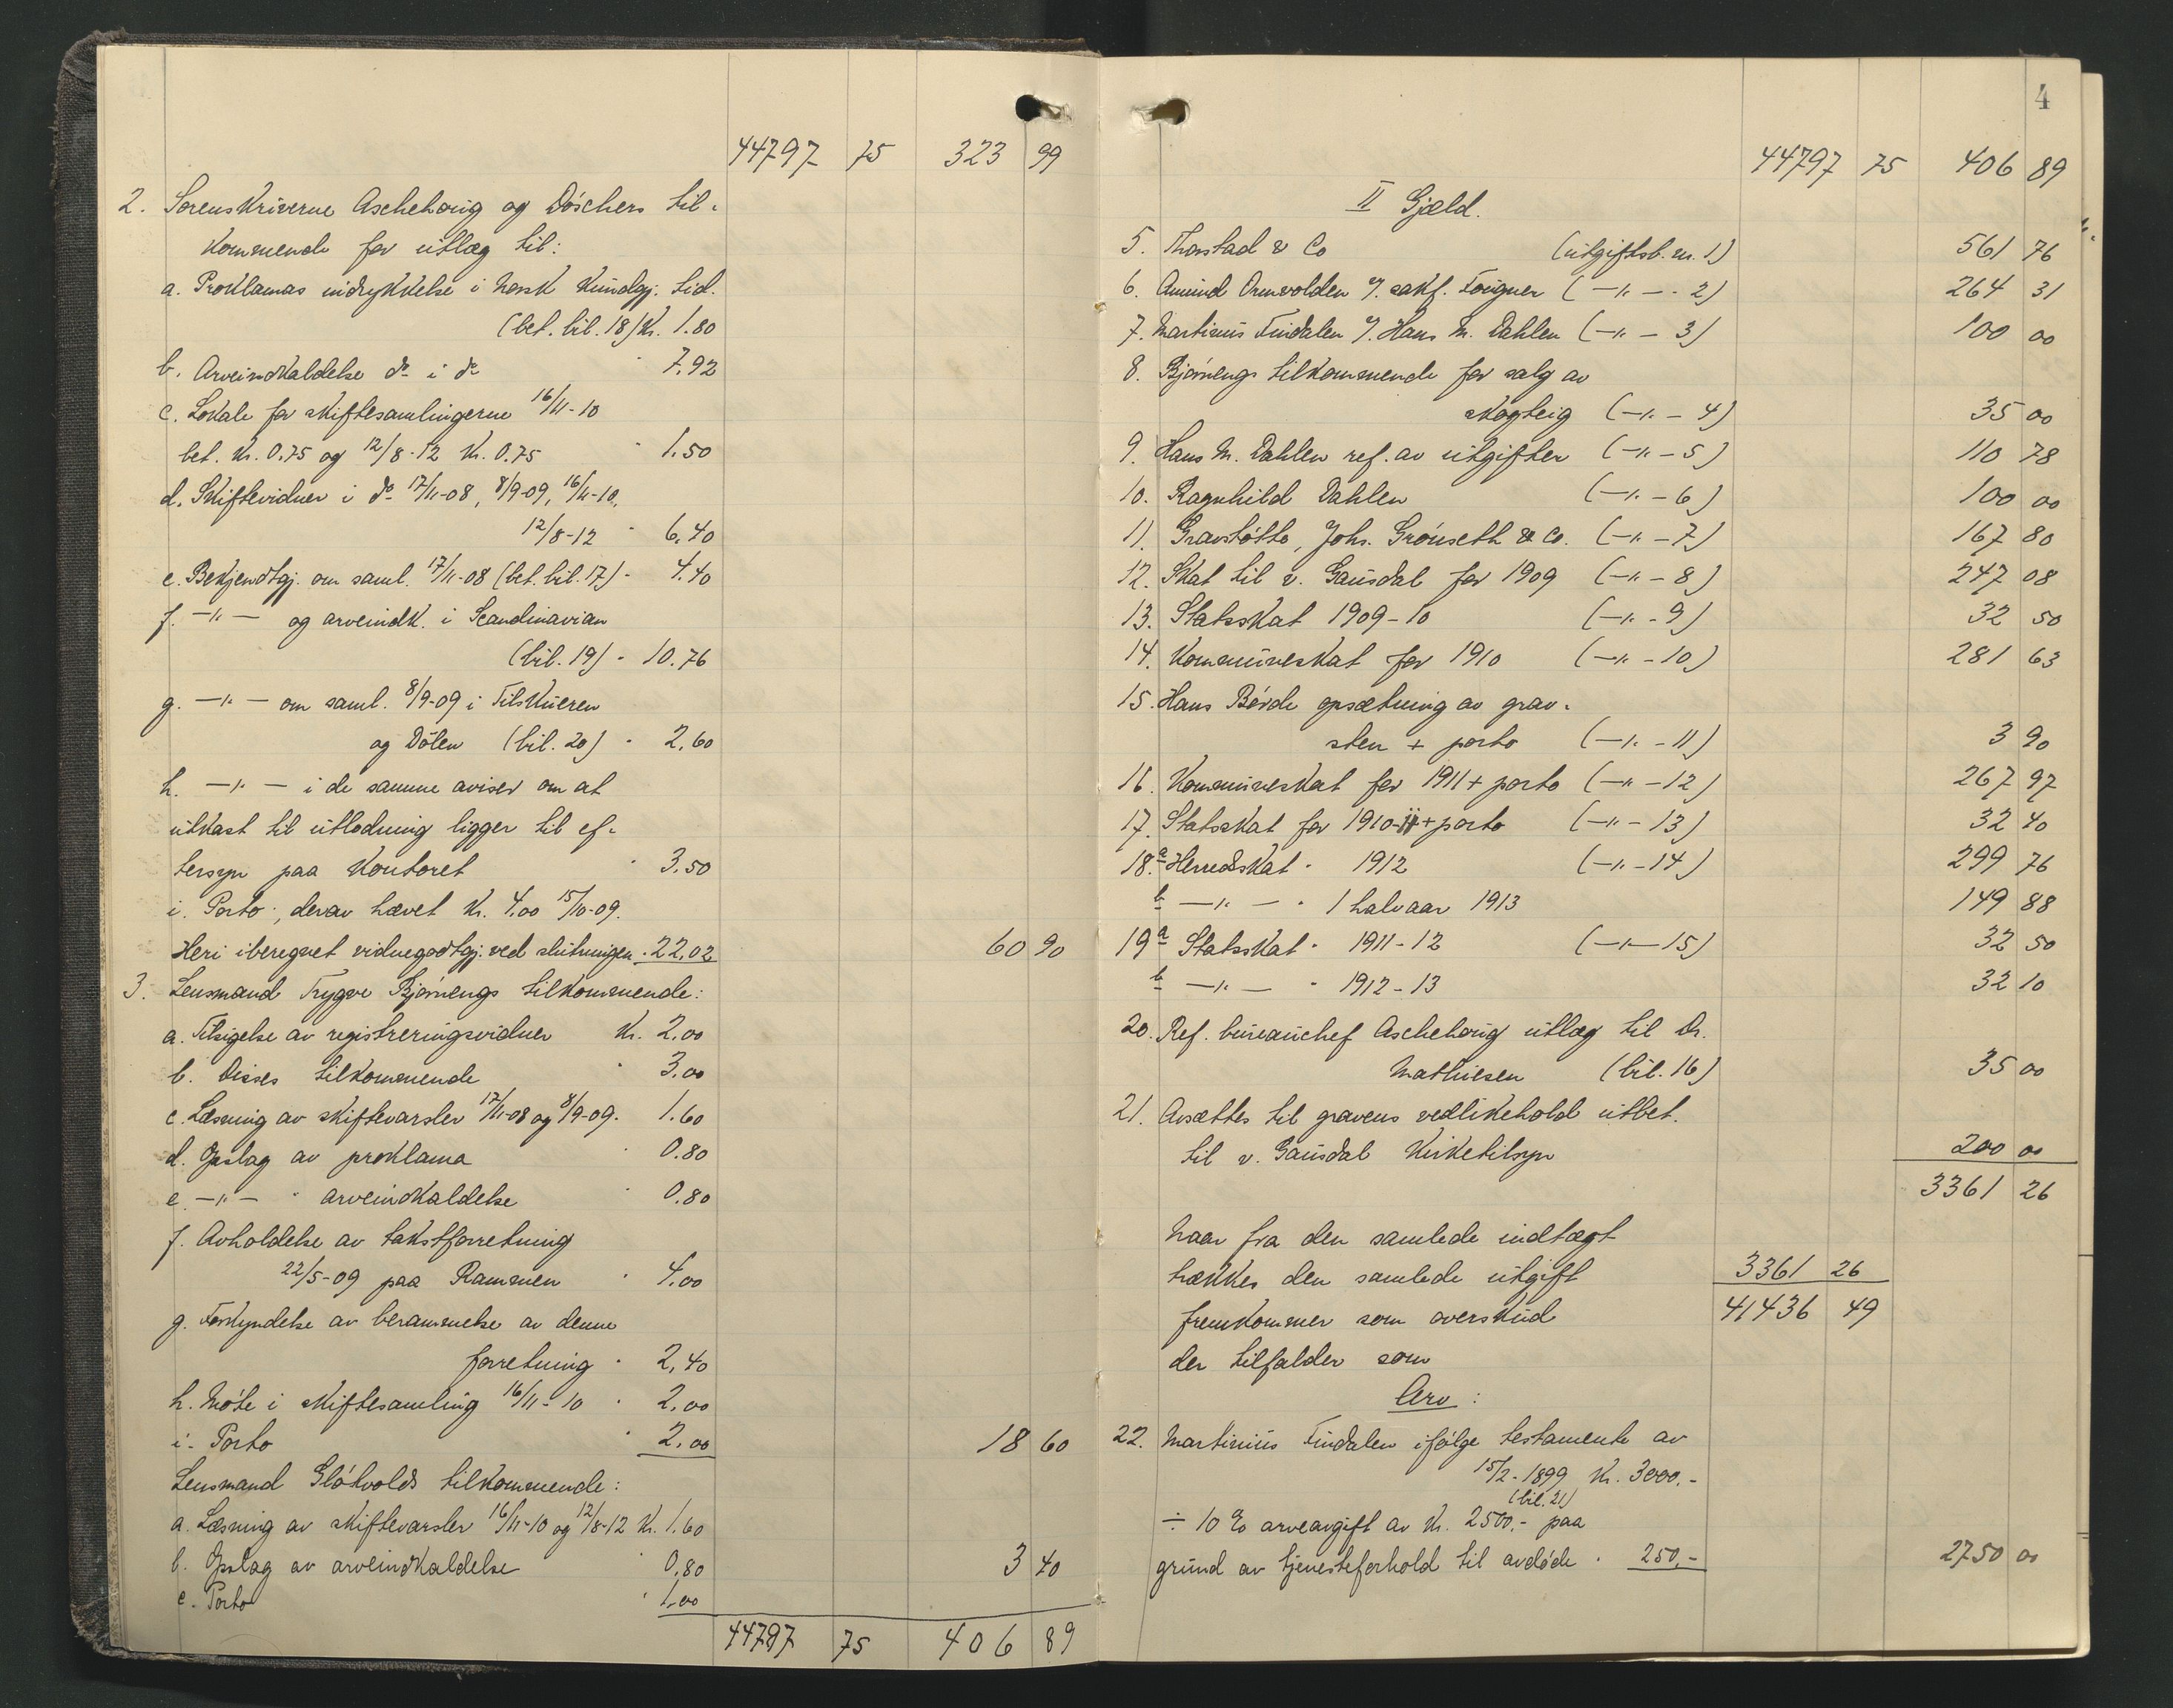 44797 75 323 99
2. Sorenskriverne Aschehoug og Döschers til-
kommende for utlæg til:
a. Proklamas indrykkelse i Norsk Kundgj. tid.
(bet. bil. 18) Kr. 1.80
b. Arveindkaldelse do i do " 7.92
c. Lokale for skiftesamlingerne 16/11-10
bet. Kr. 0.75 og 12/8-12 Kr. 0.75 " 1.50
d. Skiftevidner i do 17/11-08, 8/9-09, 16/11-10,
12/8-12 " 6.40
e. Bekjendtgj. om saml. 17/11-08 (bet. bil. 17) " 4.40
f. —"— og arveindk. i Scandinavian
(bil. 19) " 10.76
g. —"— om saml. 8/9-09 i Tilskueren
og Dölen (bil. 20) " 2.60
h. —"— i de samme aviser om at
utkast til utlodning ligger til ef-
tersyn paa Kontoret " 3.50
i. Porto, derav hævet Kr. 4.00 15/10-09.
Heri iberegnet vidnegodtgj. ved slutningen " 22.02 60 90
3. Lensmand Trygve Bjørnengs tilkommende:
a. Tilsigelse av registreringsvidner Kr. 2.00
b. Disses tilkommende " 3.00
c. Læsning av skiftevarsler 17/11-08 og 8/9-09. 1.60
d. Opslag av proklama " 0.80
e. —"— " arveindkaldelse " 0.80
f. Avholdelse av takstforretning
22/5-09 paa Rammen " 4.00
g. Forkyndelse av berammelse av denne
forretning " 2.40
h. Møte i skiftesamling 16/11-10 " 2.00
i. Porto " 2.00 18 60
Lensmand Slåtvolds tilkommende:
a. Læsning av skiftevarsler 16/11-10 og 12/8-12 Kr. 1.60
b. Opslag av arveindkaldelse " 0.80 3 40
c. Porto " 1.00
44797 75 406 89
4
44797 75 406 89
II Gjæld.
5. Thorstad & Co (utgiftsb. nr. 1) 561 76
6. Amund Ormvolden v/. sakf. Foigner (—"— " 2) 264 31
7. Martinius Findalen v/. Hans M. Dahlen (—"— 3) 100 00
8. Bjørnengs tilkommende for salg av
skogteig (—"— 4) 35 00
9. Hans M. Dahlen ref. av utgifter (—"— 5) 110 78
10. Ragnhild Dahlen (—"— 6) 100 00
11. Gravstøtte, Johs. Grönseth & Co. (—"— 7) 167 80
12. Skat til v. Gausdal for 1909 (—"— 8) 247 08
13. Statsskat 1909-10 (—"— 9) 32 50
14. Kommuneskat for 1910 (—"— 10) 281 63
15. Hans Börde opsætning av grav-
sten + porto (—"— 11) 3 90
16. Kommuneskat for 1911 + porto (—"— 12) 267 97
17. Statsskat for 1910-11 + porto (—"— 13) 32 40
18.a Herredsskat " 1912 (—"— 14) 299 76
b —"— " 1 halvaar 1913 149 88
19a Statsskat " 1911-12 (—"—15) 32 50
b —"— " 1912-13 32 10
20. Ref. bureauchef Aschehoug utlæg til Dr.
Mathiesen (bil. 16) 35 00
21. Avsættes til gravens vedlikehold utbet.
til v. Gausdal Kirketilsyn 200 00
3361 26
Naar fra den samlede indtægt
trækkes den samlede utgift 3361 26
fremkommer som overskud 41436 49
der tilfalder som
Arv:
22. Martinius Findalen ifølge testamente av
15/2-1899 Kr. 3000.-
(bil. 21)
÷ 10 % arveavgift av Kr. 2500.- paa
grund av tjenesteforhold til avdøde " 250.- 2750 00